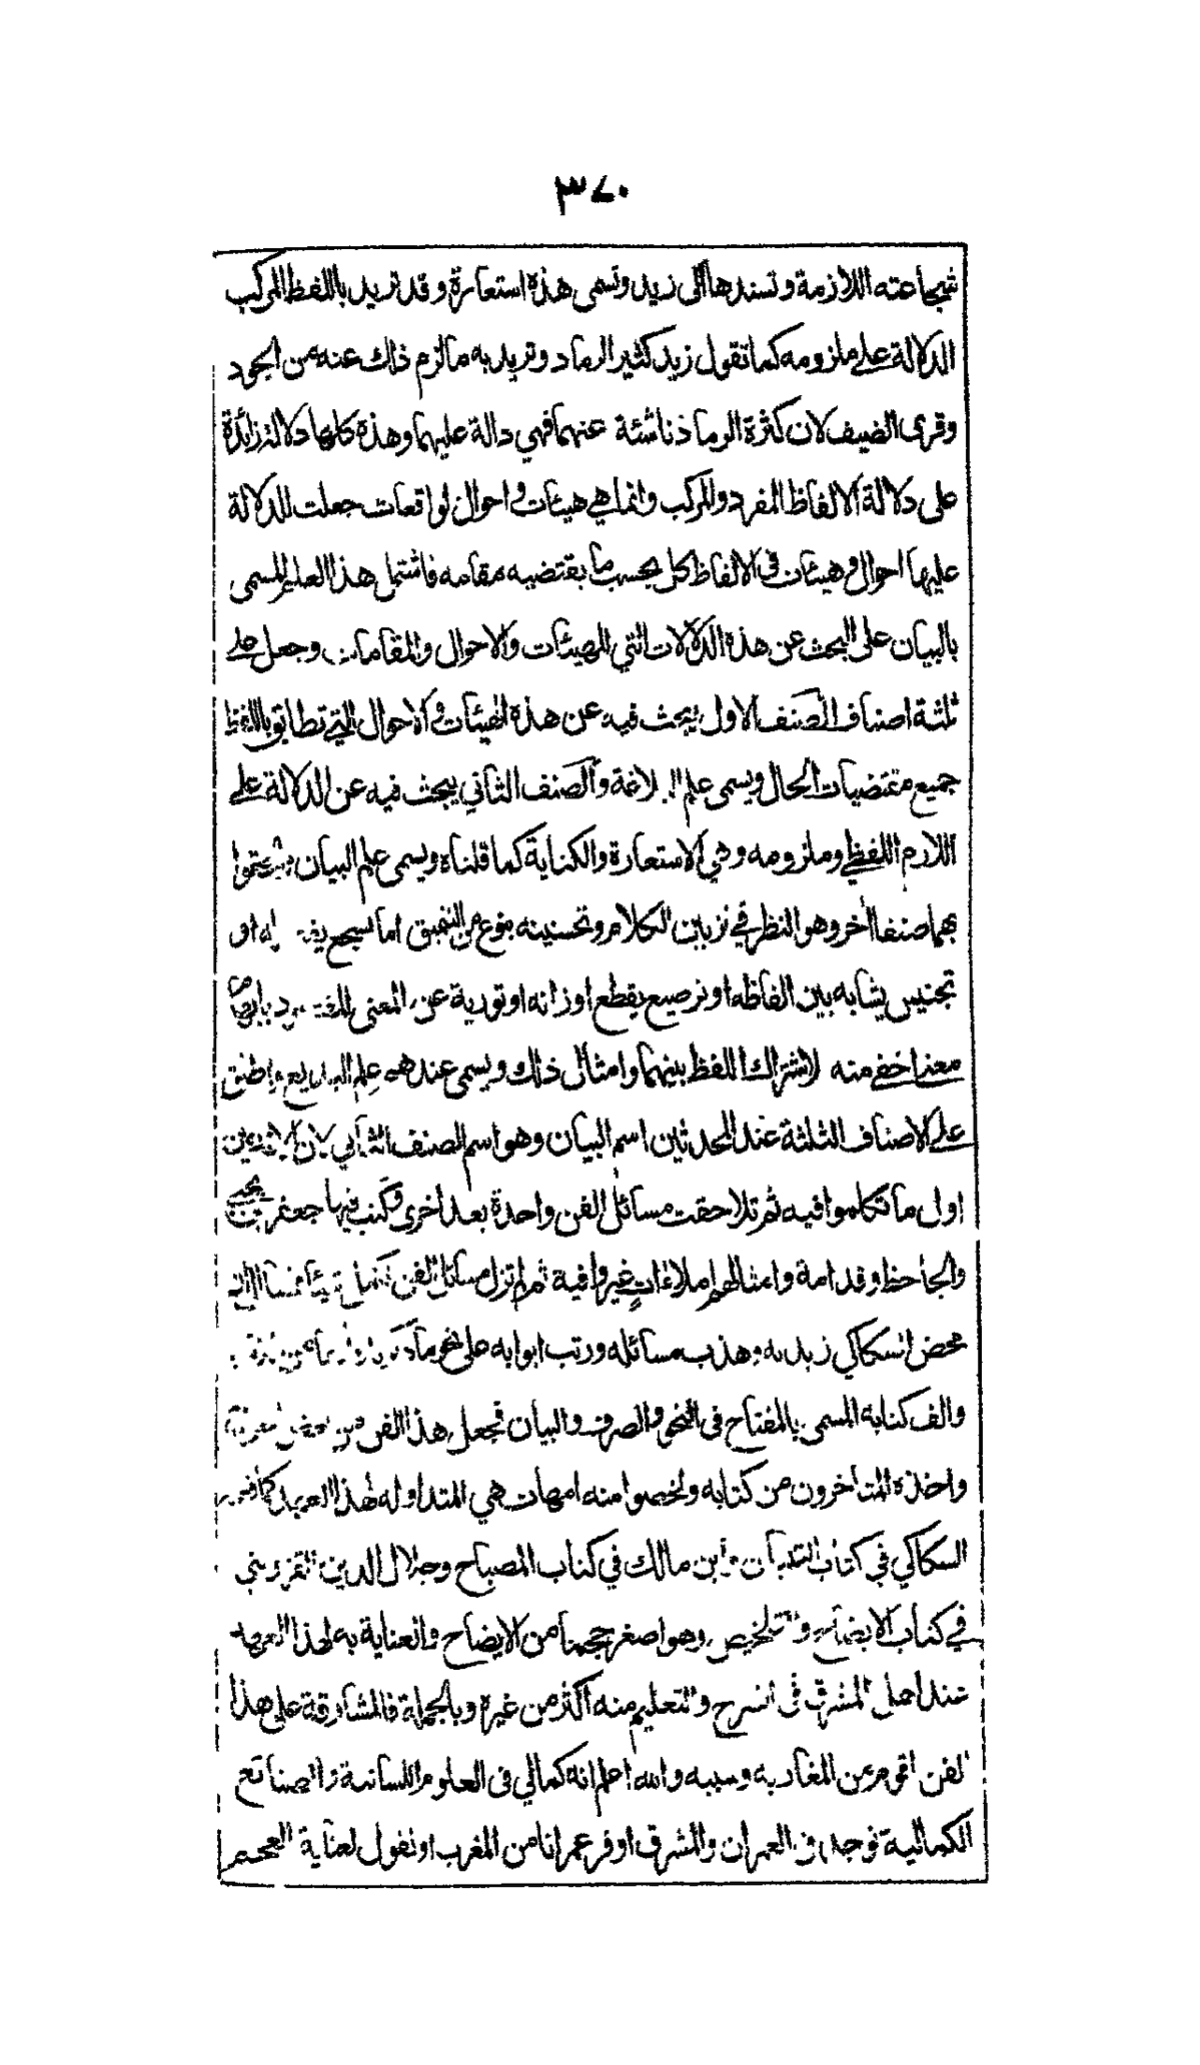 ٣٧٠
شجاعته اللازمة وتسندها الى زيد وتسمى هذه استعارة وقد تريد باللفظ المركب
الدلالة على ملزومه كما تقول زيد كثير الرماد وتريد به ما لزم ذلك عنه من الجود
وقرى الضيف لان كثرة الرماد ناشئة عنهما فهي دالة عليهما وهذه كلها دلالة زائدة
على دلالة الالفاظ المفرد والمركب وانما هي هيئات واحوال لواقعات جعلت للدلالة
عليها احوال وهيئات فى الالفاظ كل بحسب ما يقتضيه مقامه فاشتمل هذا العلم المسمى
بالبيان على البحث عن هذه الدلالات التي للهيئات والاحوال والمقامات وجعل على
ثلثة اصناف الصنف الاول يبحث فيه عن هذه الهيئات والاحوال التي تطابق باللفظ
جميع مقتضيات الحال ويسمى علم البلاغة والصنف الثاني يبحث فيه عن الدلالة على
اللازم اللفظي وملزومه وهي الاستعارة والكناية كما قلناه ويسمى علم البيان والحقوا
بهما صنفا اخر وهو النظر في تزيين الكلام وتحسينه بنوع من التنميق اما بسجع يفصله او
تجنيس يشابه بين الفاظه او ترصيع يقطع اوزانه او تورية عن المعنى المقصود بايهام
معنى اخفى منه لاشتراك اللفظ بينهما وامثال ذلك ويسمى عندهم علم البديع واطلق
على الاصناف الثلثة عند المحدثين اسم البيان وهو اسم الصنف الثاني لان الاقدمين
اول ما تكلموا فيه ثم تلاحقت مسائل الفن واحدة بعد اخرى وكتب فيها جعفر بن يحيى
والجاحظ وقدامة وامثالهم املاءات غير وافية ثم لم تزل مسائل الفن تكمل شيئا فشيئا الى ان
محض السكاكي زبدته وهذب مسائله ورتب ابوابه على نحو ما ذكرناه
والف كتابه المسمى بالمفتاح فى النحو والصرف والبيان فجعل هذا الفن من بعض اجزائه
واخذه المتاخرون من كتابه ولخصوا منه امهات هي المتداولة لهذا العهد كما فعله
السكاكي في كتاب التبيان وابن مالك في كتاب المصباح وجلال الدين القزويني
في كتاب الايضاح والتلخيص وهو اصغر حجما من الايضاح والعناية به لهذا العهد
عند اهل المشرق فى الشرح والتعليم منه اكثر من غيره وبالجملة فالمشارقة على هذا
الفن اقوم من المغاربه وسببه والله اعلم انه كمالي فى العلوم اللسانية والصنائع
الكمالية توجد فى العمران والمشرق اوفر عمرانا من المغرب او نقول لعناية العجم